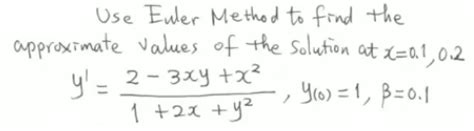 Use Euler Method to find the
approximate values of the solution at x=0.1, 0.2
y' = (2 - 3xy + x²) / (1 + 2x + y²), y(0) = 1, β=0.1